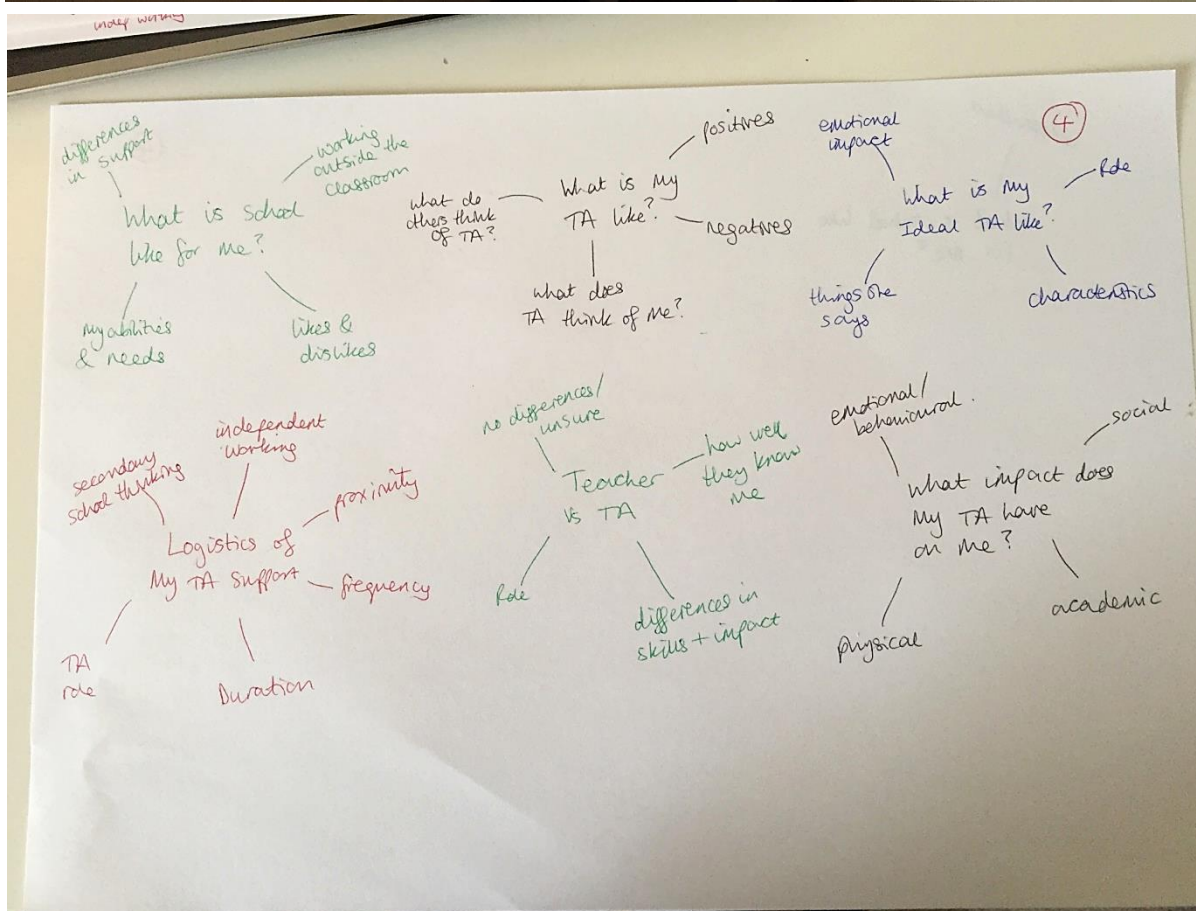 indep working
4
differences
in support
working
outside the
classroom
What is school
like for me?
my abilities
& needs
likes &
dislikes
positives
what do
others think
of TA?
What is my
TA like?
negatives
what does
TA think of me?
emotional
impact
Role
What is my
Ideal TA like?
things one
says
characteristics
secondary
school thinking
independent
working
proximity
Logistics of
My TA support
frequency
TA
role
Duration
no differences/
unsure
how well
they know
me
Teacher
vs TA
Role
differences in
skills + impact
emotional/
behavioural.
social
what impact does
my TA have
on me?
physical
academic